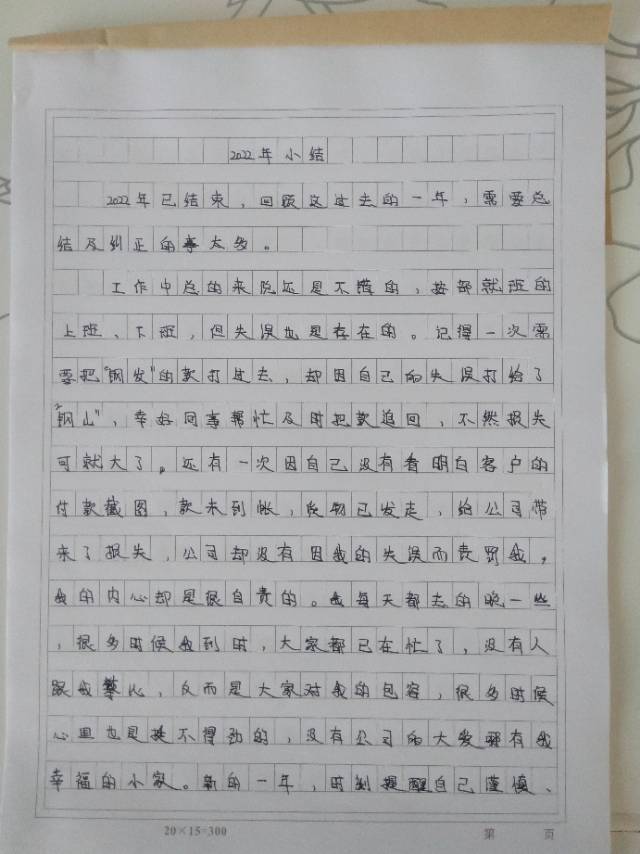 2022年小结
2022年已结束，回顾这过去的一年，需要总
结及纠正的事太多。
工作中总的来说还是不错的，按部就班的
上班、下班，但失误也是存在的。记得一次需
要把“钢发”的款打过去，却因自己的失误打给了
“钢山”，幸好同事帮忙及时把款追回，不然损失
可就大了。还有一次因自己没有看明白客户的
付款截图，款未到帐，货物已发走，给公司带
来了损失，公司却没有因我的失误而责罚我，
我的内心却是很自责的。我每天都去的晚一些
，很多时候我到时，大家都已在忙了，没有人
跟我攀比，反而是大家对我的包容，很多时候
心里也是挺不得劲的，没有公司的大爱哪有我
幸福的小家。新的一年，时刻提醒自己谨慎、
20×15=300
第 页